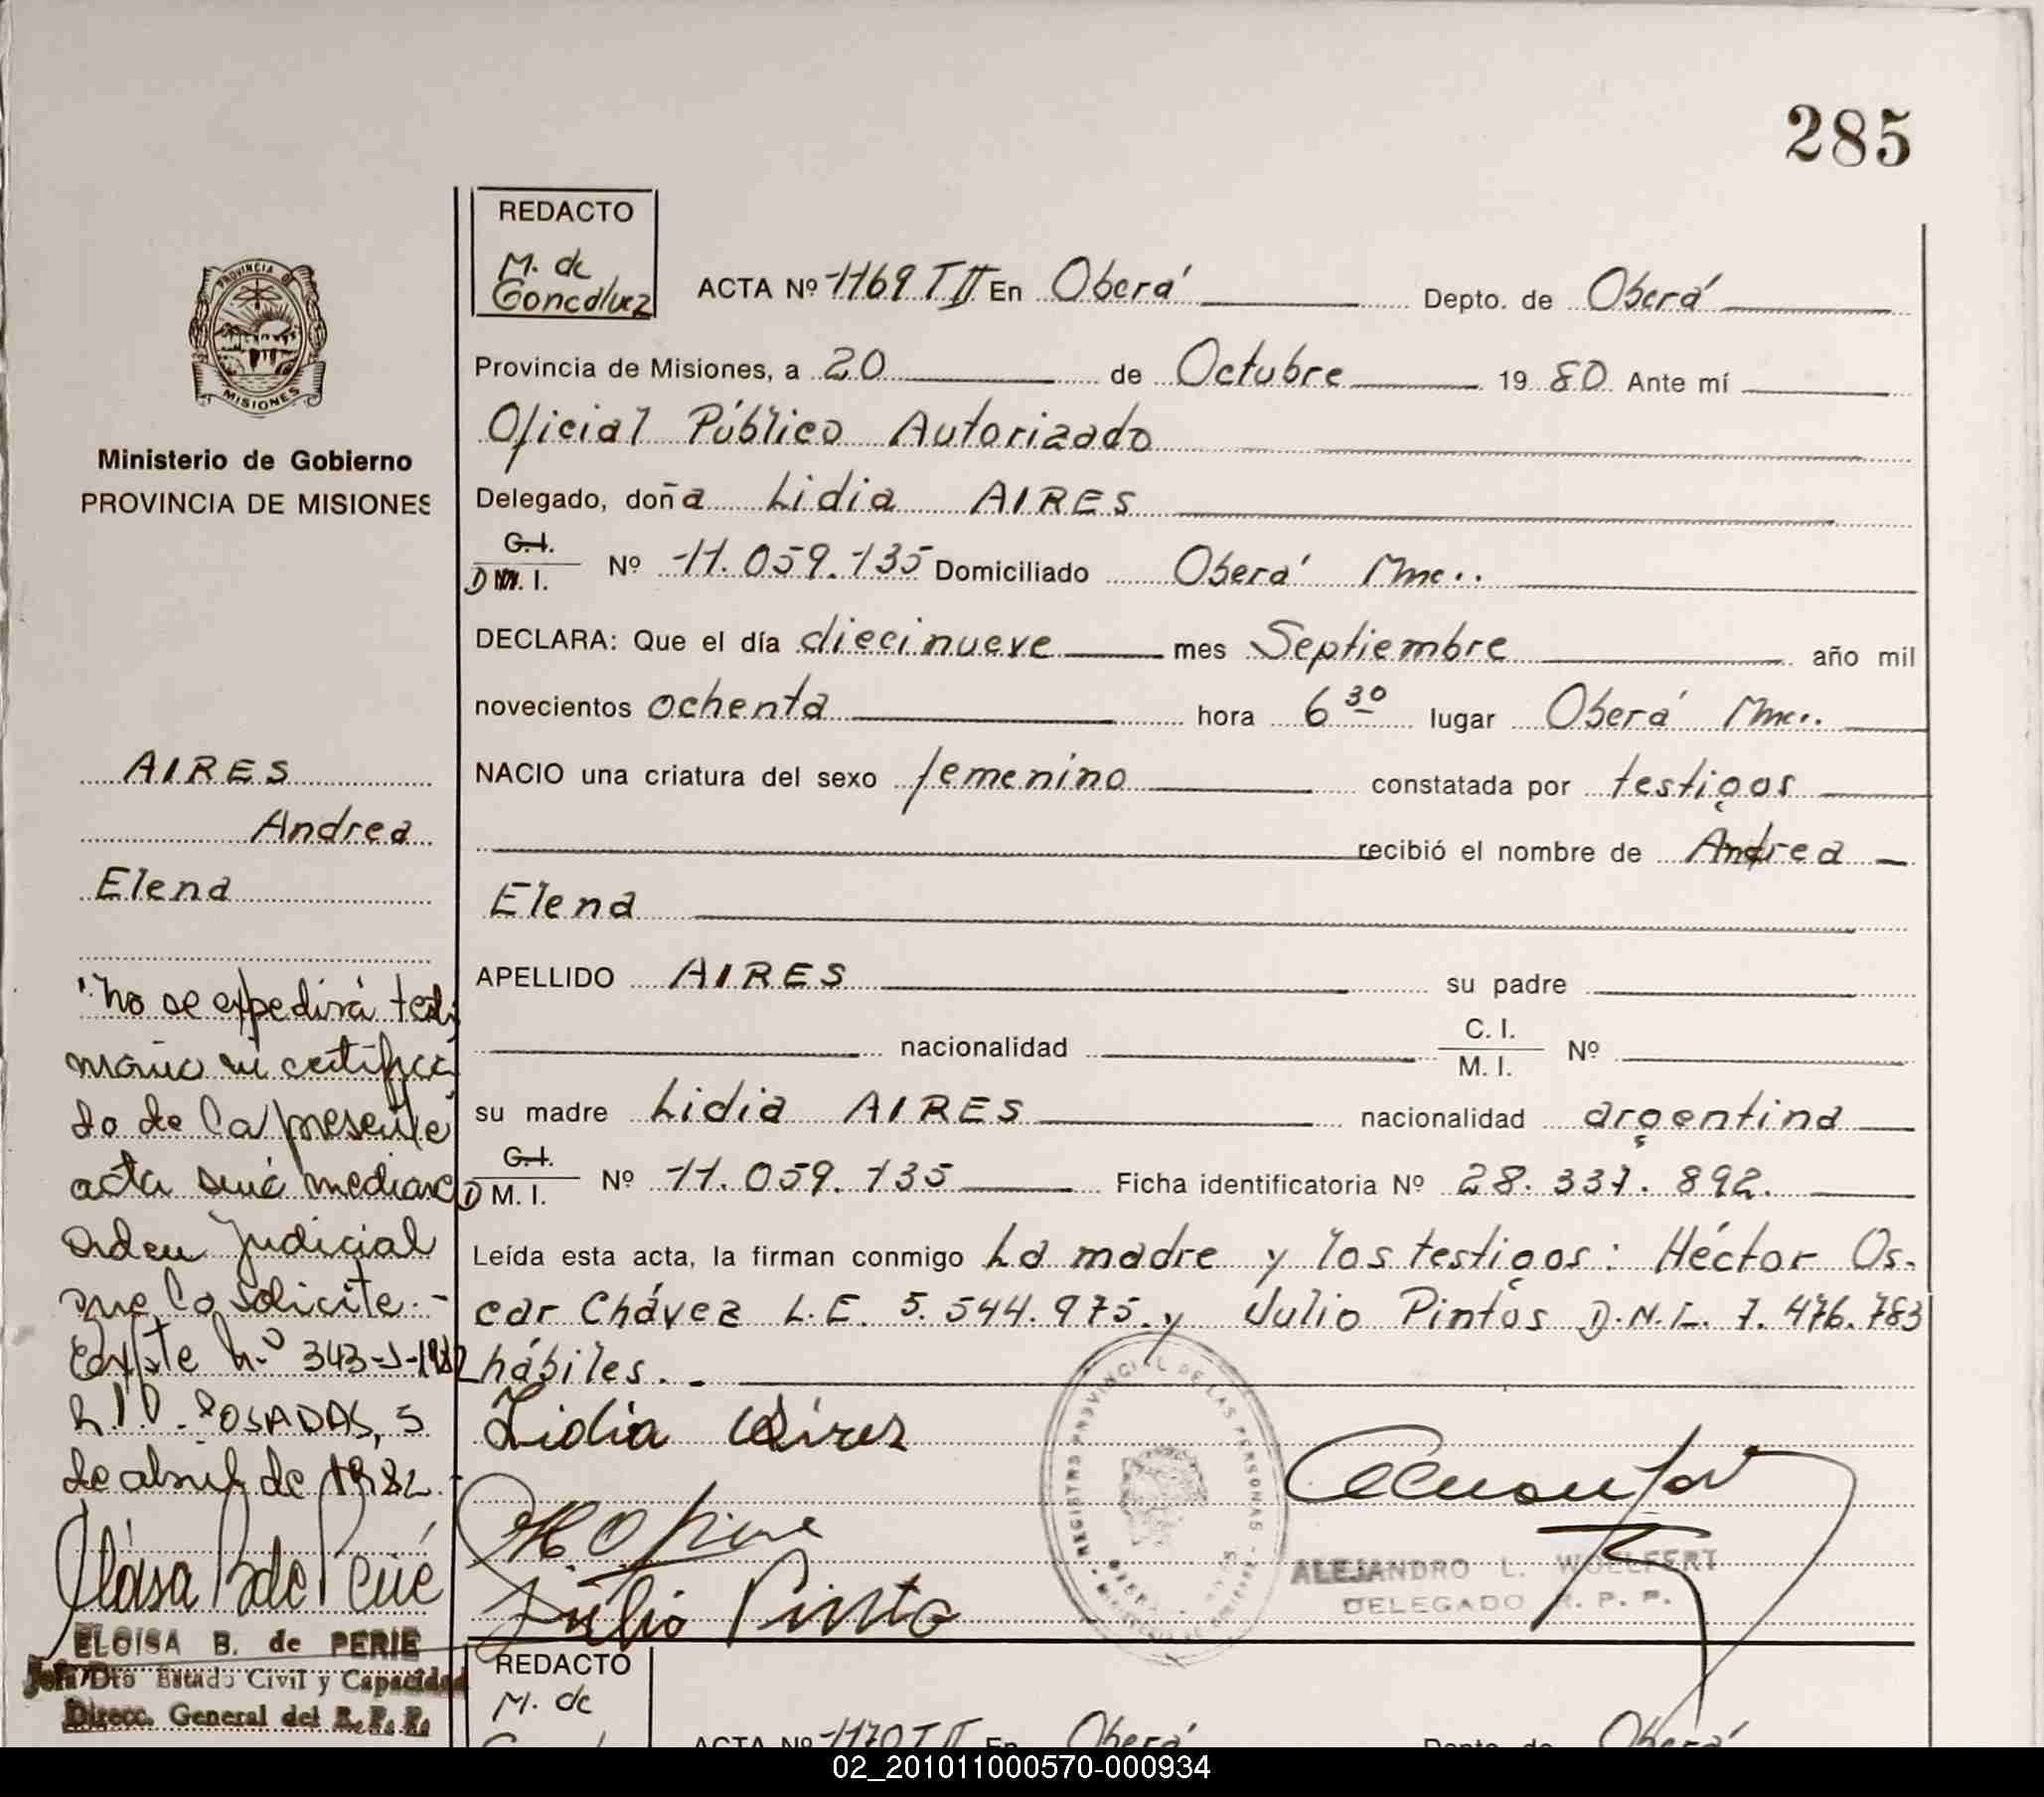 285
REDACTO
M. de
Goncalvez
ACTA Nº 1169 TII En Oberá Depto. de Oberá
Provincia de Misiones, a 20 de Octubre 19 80 Ante mí
Oficial Público Autorizado
Delegado, doña Lidia AIRES
C.I.
D M. I. Nº 11.059.135 Domiciliado Oberá Mnes.
DECLARA: Que el día diecinueve mes Septiembre año mil
novecientos ochenta hora 6 30 lugar Oberá Mnes.
NACIO una criatura del sexo femenino constatada por testigos
recibió el nombre de Andrea
Elena
APELLIDO AIRES su padre
nacionalidad C. I.
M. I. Nº
su madre Lidia AIRES nacionalidad argentina
C.I.
D M. I. Nº 11.059.135 Ficha identificatoria Nº 28.337.892.
Leída esta acta, la firman conmigo La madre y los testigos: Héctor Os-
car Chávez L.E. 5.544.975. y Julio Pintos D.N.I. 7.476.783
hábiles. -
Lidia Aires
Julio Pinto
REGISTRO PROVINCIAL DE LAS PERSONAS
ALEJANDRO L. WOELFERT
DELEGADO R. P. P.
PROVINCIA DE
MISIONES
Ministerio de Gobierno
PROVINCIA DE MISIONES
AIRES
Andrea
Elena
"No se expedirá testi
monio ni certifica
do de la presente
acta sino mediante
orden judicial
que lo solicite.-
Expte N.º 343-J-1982
R.P.P. POSADAS, 5
de abril de 1982.-
Eloisa B de Perié
ELOISA B. de PERIE
Jefa Dto Estado Civil y Capacidad
Direcc. General del R. P. P.
REDACTO
M. de
ACTA Nº 1170 TII En Oberá Depto. de Oberá
02_201011000570-000934